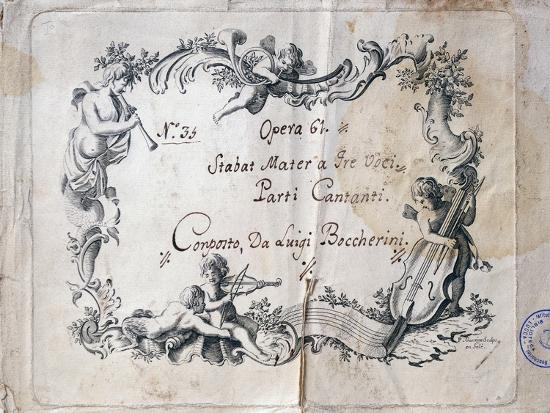 N.º 35
Opera 61.
Stabat Mater a Tre Voci.
Parti Cantanti.
Conposto, Da Luigi Boccherini.